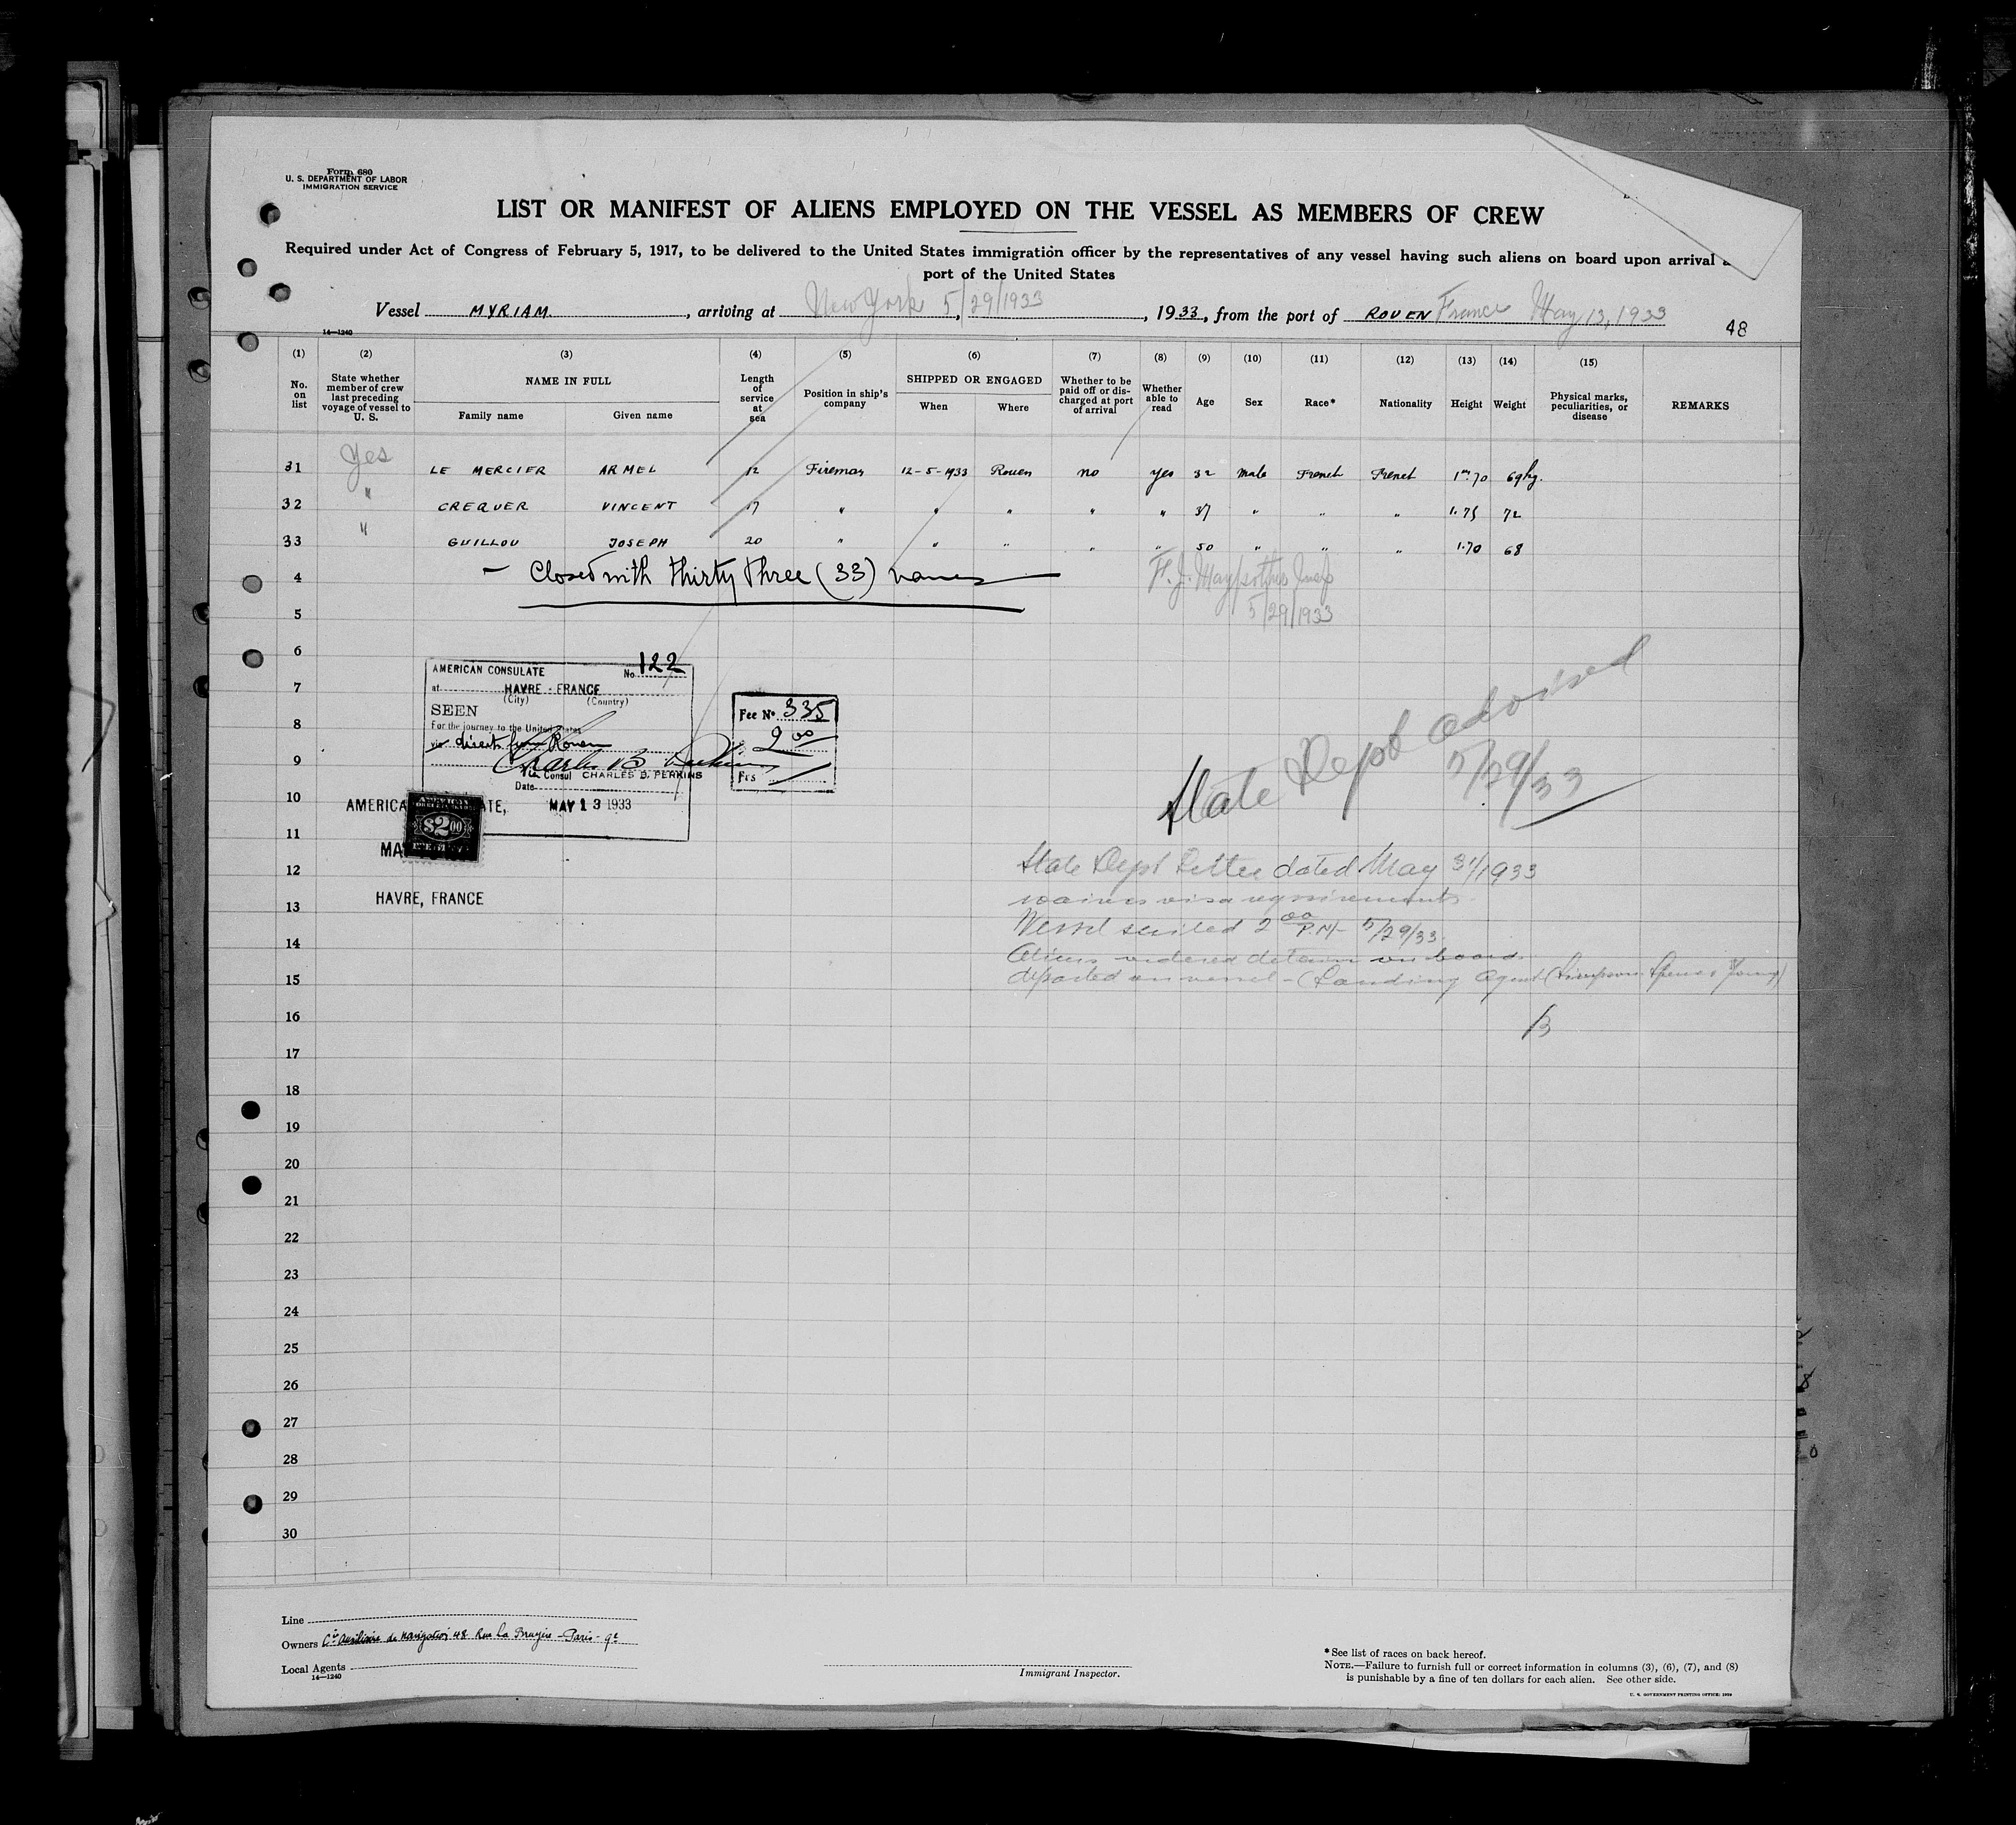 Form 680
U. S. DEPARTMENT OF LABOR
IMMIGRATION SERVICE
LIST OR MANIFEST OF ALIENS EMPLOYED ON THE VESSEL AS MEMBERS OF CREW
Required under Act of Congress of February 5, 1917, to be delivered to the United States immigration officer by the representatives of any vessel having such aliens on board upon arrival
port of the United States
Vessel MYRIAM, arriving at New York 5/29/1933, 1933, from the port of ROUEN France May 13, 1933
14—1240
48
(1) (2) (3) (4) (5) (6) (7) (8) (9) (10) (11) (12) (13) (14) (15)
No. on list
State whether member of crew last preceding voyage of vessel to U. S.
NAME IN FULL
Family name
Given name
Length of service at sea
Position in ship's company
SHIPPED OR ENGAGED
When
Where
Whether to be paid off or discharged at port of arrival
Whether able to read
Age
Sex
Race*
Nationality
Height
Weight
Physical marks, peculiarities, or disease
REMARKS
31 Yes LE MERCIER ARMEL 12 Fireman 12-5-1933 Rouen no yes 32 male French French 1m.70 69kg.
32 " CREQUER VINCENT 17 " " " " " 37 " " " 1.75 72
33 " GUILLOU JOSEPH 20 " " " " " 50 " " " 1.70 68
4 - Closed with thirty three (33) names
F. J. Insp
5/29/1933
5
6
7
8
9
10
11
12
13
14
15
16
17
18
19
20
21
22
23
24
25
26
27
28
29
30
AMERICAN CONSULATE No 122
at HAVRE - FRANCE
(City) (Country)
SEEN
For the journey to the United States
via direct from Rouen
Charles B Perkins
Vice Consul CHARLES B. PERKINS
Date MAY 13 1933
Fee No 335
2 00
Frs
AMERICAN
$2 00
HAVRE, FRANCE
State Dept advised
5/29/33
State Dept Letter dated May 31/1933
waives visa requirements.
Vessel sailed 2 00 P.M- 5/29/33.
Aliens ordered detain on board
departed on vessel - (Landing Agent (Simpson Spence & Young)
Line
Owners Cie Auxiliaire de navigation 48 Rue La Bruyère - Paris - 9e
Local Agents
14—1240
Immigrant Inspector.
*See list of races on back hereof.
NOTE.—Failure to furnish full or correct information in columns (3), (6), (7), and (8)
is punishable by a fine of ten dollars for each alien. See other side.